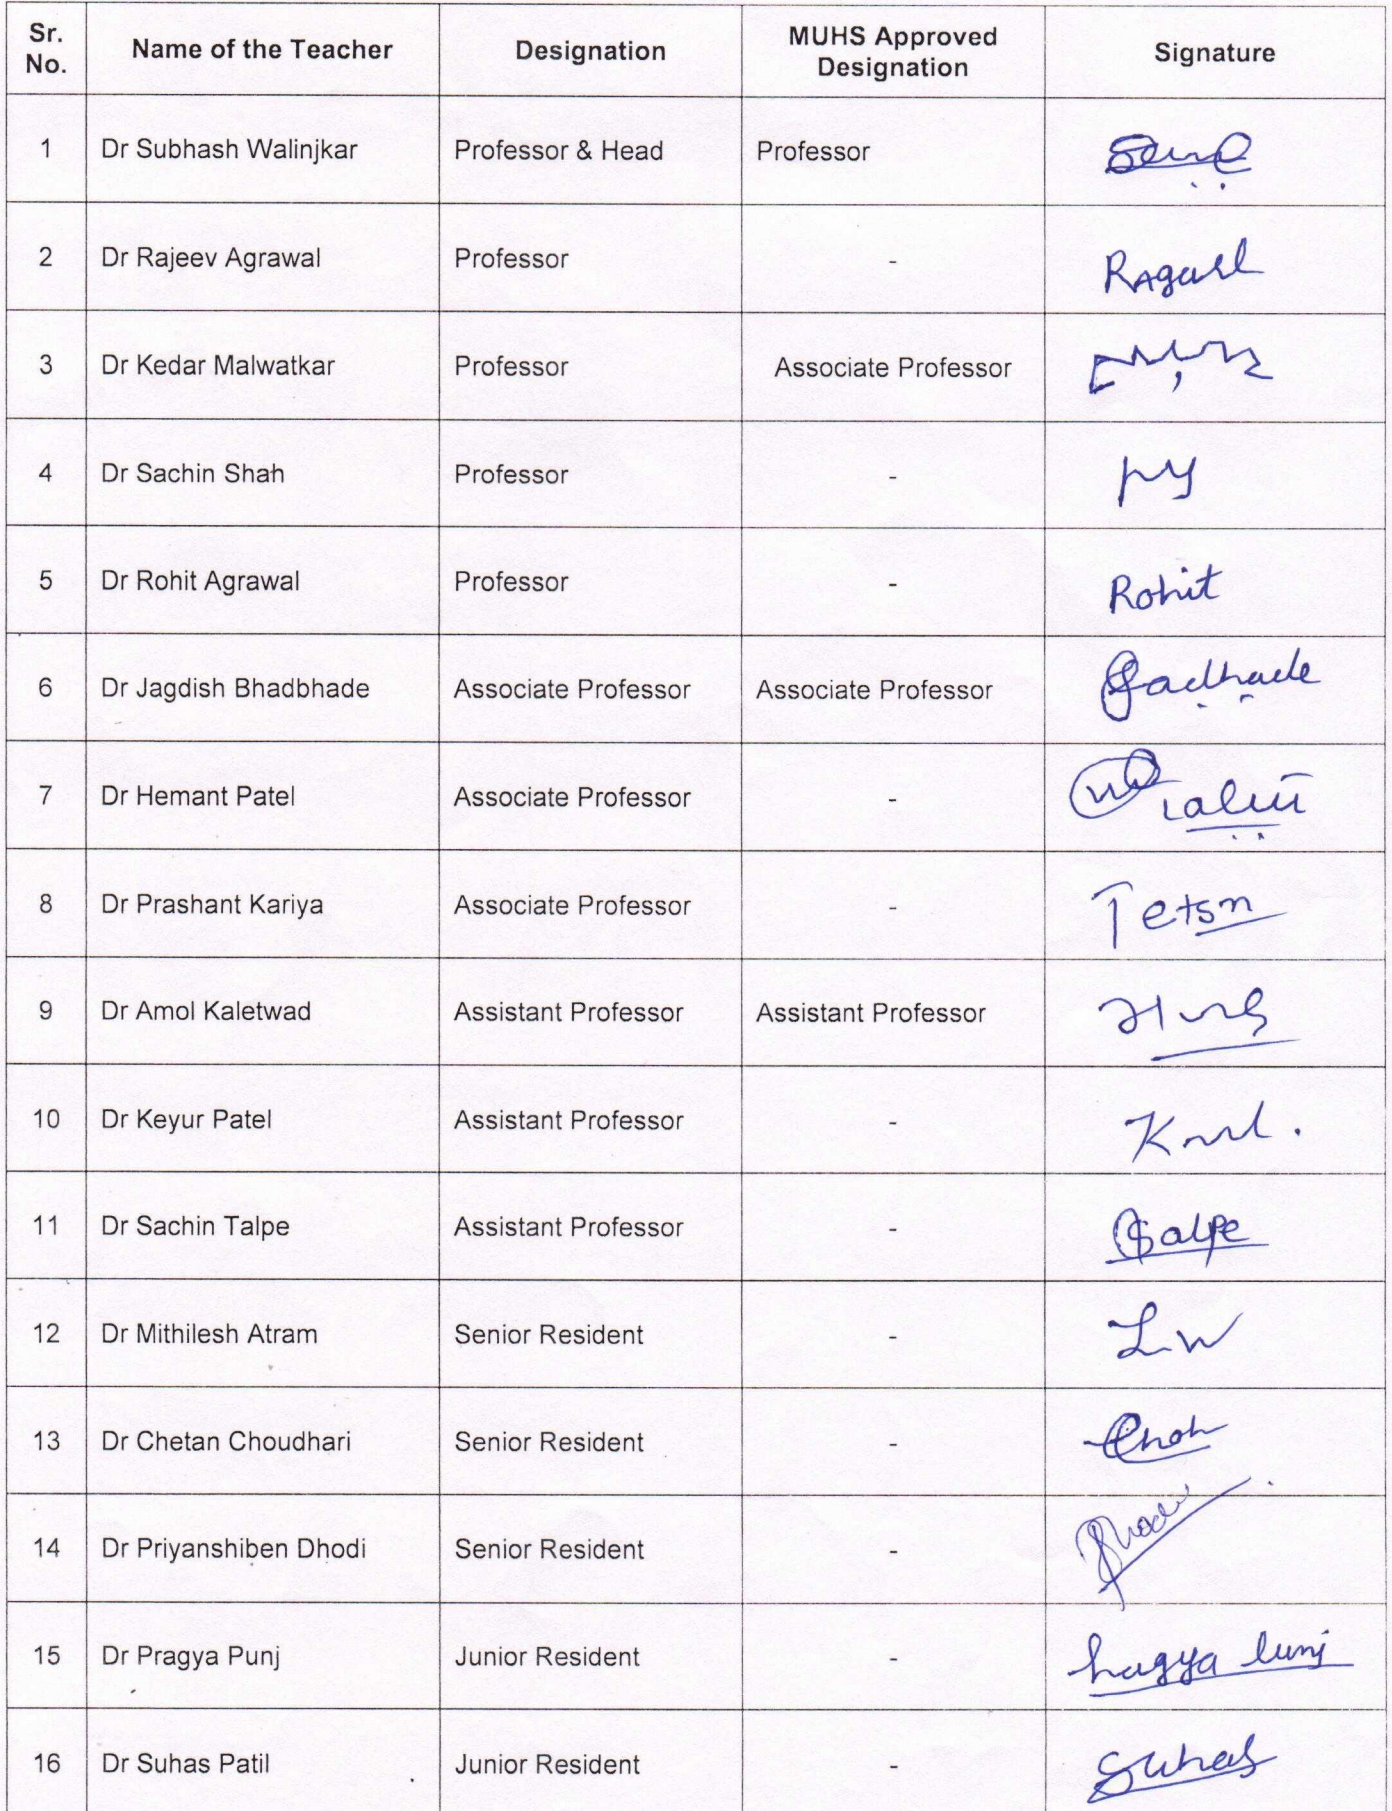 Sr. No. Name of the Teacher Designation MUHS Approved Designation Signature
1 Dr Subhash Walinjkar Professor & Head Professor
2 Dr Rajeev Agrawal Professor - RAgarl
3 Dr Kedar Malwatkar Professor Associate Professor
4 Dr Sachin Shah Professor -
5 Dr Rohit Agrawal Professor - Rohit
6 Dr Jagdish Bhadbhade Associate Professor Associate Professor
7 Dr Hemant Patel Associate Professor -
8 Dr Prashant Kariya Associate Professor -
9 Dr Amol Kaletwad Assistant Professor Assistant Professor
10 Dr Keyur Patel Assistant Professor -
11 Dr Sachin Talpe Assistant Professor -
12 Dr Mithilesh Atram Senior Resident -
13 Dr Chetan Choudhari Senior Resident -
14 Dr Priyanshiben Dhodi Senior Resident -
15 Dr Pragya Punj Junior Resident -
16 Dr Suhas Patil Junior Resident - Suhas